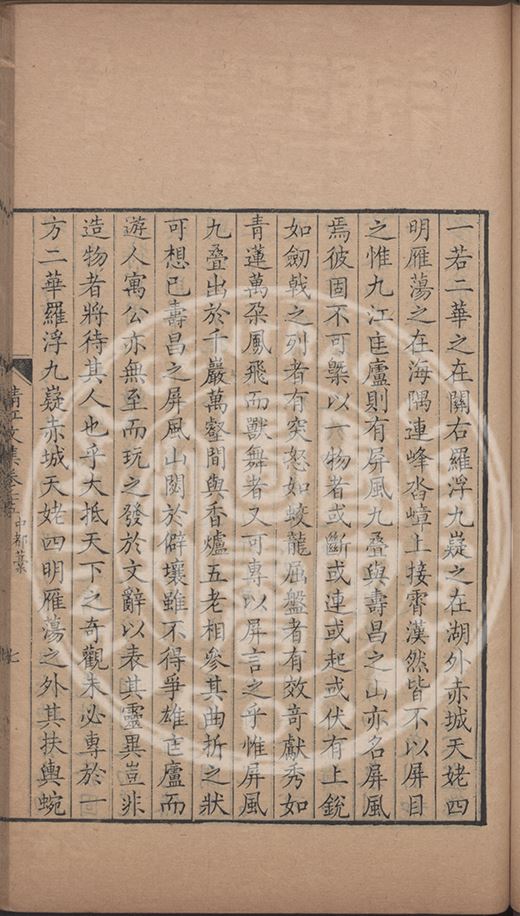 一若二華之在關右羅浮九嶷之在湖外赤城天姥四
明雁蕩之在海隅連峰沓嶂上接霄漢然皆不以屏目
之惟九江匡廬則有屏風九叠與壽昌之山亦名屏風
焉彼固不可槩以一物者或斷或連或起或伏有上銳
如劒戟之列者有突怒如蛟龍屈盤者有效奇獻秀如
青蓮萬朶鳳飛而獸舞者又可專以屏言之乎惟屏風
九叠出於千巖萬壑間與香爐五老相參其曲折之狀
可想已壽昌之屏風山閟於僻壤雖不得爭雄匡廬而
遊人寓公亦無至而玩之發於文辭以表其靈異豈非
造物者將待其人也乎大抵天下之奇觀未必專於一
方二華羅浮九嶷赤城天姥四明雁蕩之外其扶輿蜿
清江文集卷之
中都藁
七